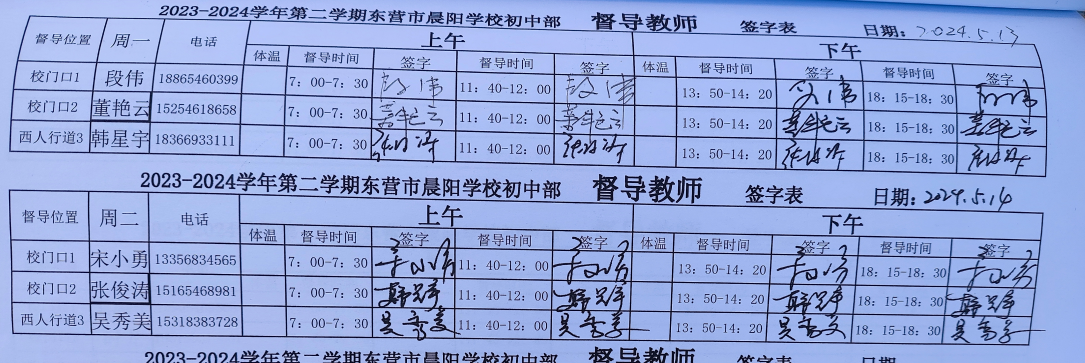 2023-2024学年第二学期东营市晨阳学校初中部 督导教师 签字表 日期: 2024.5.13
督导位置 周一 电话 上午 下午
体温 督导时间 签字 督导时间 签字 体温 督导时间 签字 督导时间 签字
校门口1 段伟 18865460399 7: 00-7: 30 段伟 11: 40-12: 00 段伟 13: 50-14: 20 18: 15-18: 30
校门口2 董艳云 15254618658 7: 00-7: 30 董艳云 11: 40-12: 00 董艳云 13: 50-14: 20 董艳云 18: 15-18: 30 董艳云
西人行道3 韩星宇 18366933111 7: 00-7: 30 11: 40-12: 00 13: 50-14: 20 18: 15-18: 30
2023-2024学年第二学期东营市晨阳学校初中部 督导教师 签字表 日期: 2024.5.14
督导位置 周二 电话 上午 下午
体温 督导时间 签字 督导时间 签字 体温 督导时间 签字 督导时间 签字
校门口1 宋小勇 13356834565 7: 00-7: 30 11: 40-12: 00 13: 50-14: 20 18: 15-18: 30
校门口2 张俊涛 15165468981 7: 00-7: 30 11: 40-12: 00 13: 50-14: 20 18: 15-18: 30
西人行道3 吴秀美 15318383728 7: 00-7: 30 吴秀美 11: 40-12: 00 吴秀美 13: 50-14: 20 吴秀美 18: 15-18: 30 吴秀美
2023-2024学年第二学期东营市晨阳学校初中部 督导教师 签字表